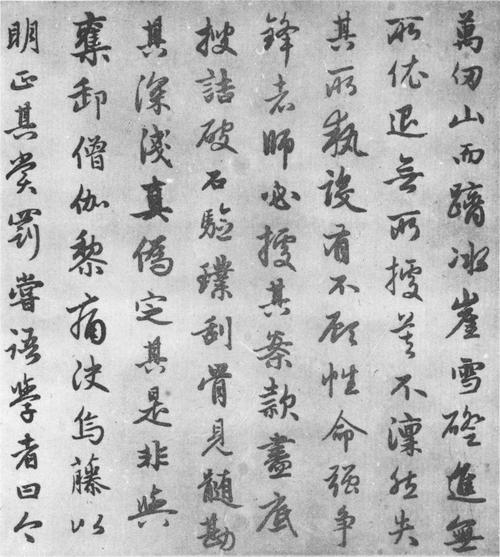 萬仞山而躋冰崖雪磴進無
所依退無所據莫不凛然失
其所執設有不顧性命强争
鋒者師必據其案款盡底
搜詰破石驗璞刮骨見髓勘
其深淺真偽定其是非與
奪卸僧伽黎痛決烏藤以
明正其賞罰嘗語學者曰今